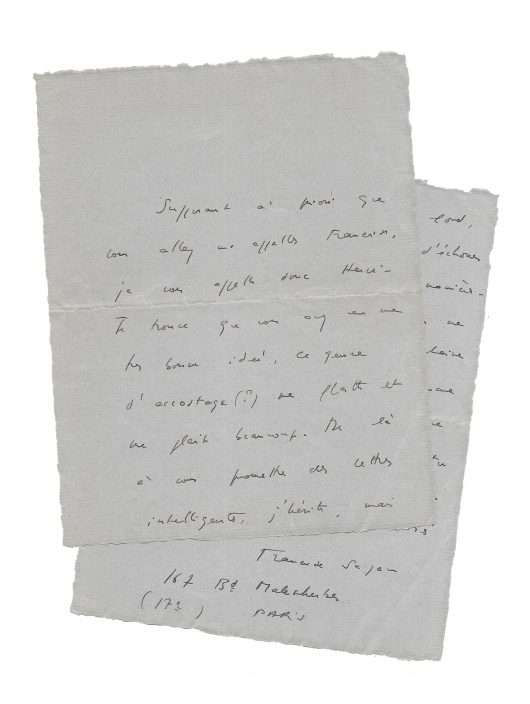 Supposant à priori que
vous allez m'appeller Françoise,
je vous appelle donc Henri-
Je trouve que vous avez eu une
très bonne idée, ce genre
d'accostage (?) me flatte et
me plaît beaucoup. De là
à vous promettre des lettres
intelligentes, j'hésite, mais
lord,
d'échouer
ne
haine
Francoise Sagan
167 Bd Malesherbes
(17e) PARIS